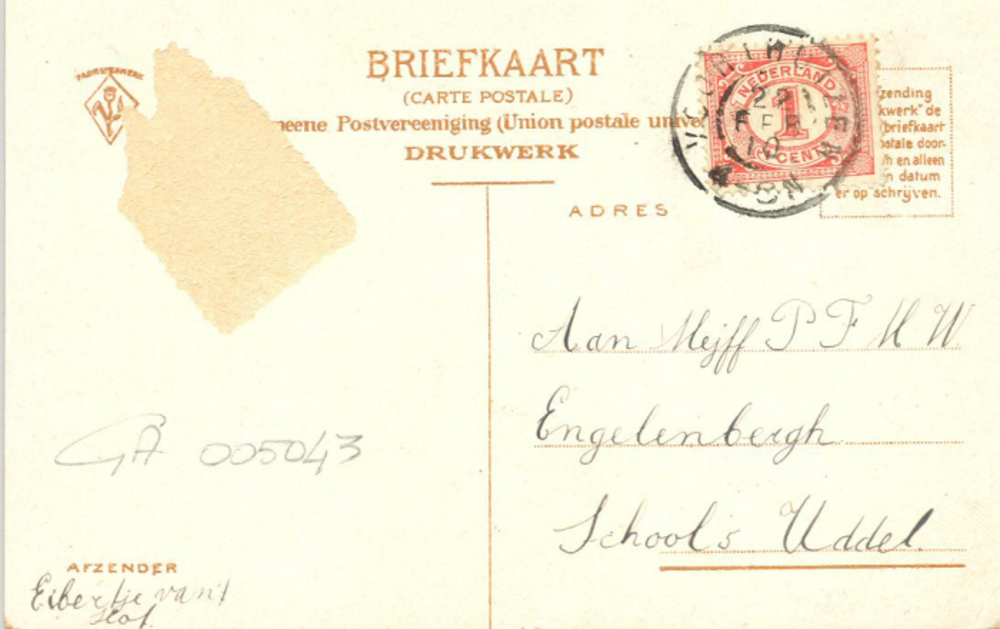 FABRIEKSMERK
BRIEFKAART
(CARTE POSTALE)
meene Postvereeniging (Union postale unive
DRUKWERK
NEDERLAND
1
CENT
22
FEB
10
zending
kwerk" de
briefkaart
stale door-
h en alleen
n datum
er op schrijven.
ADRES
Aan Mejff P F M W
Engelenbergh
School's Uddel.
GA 005043
AFZENDER
Eibertje van't
Hof.